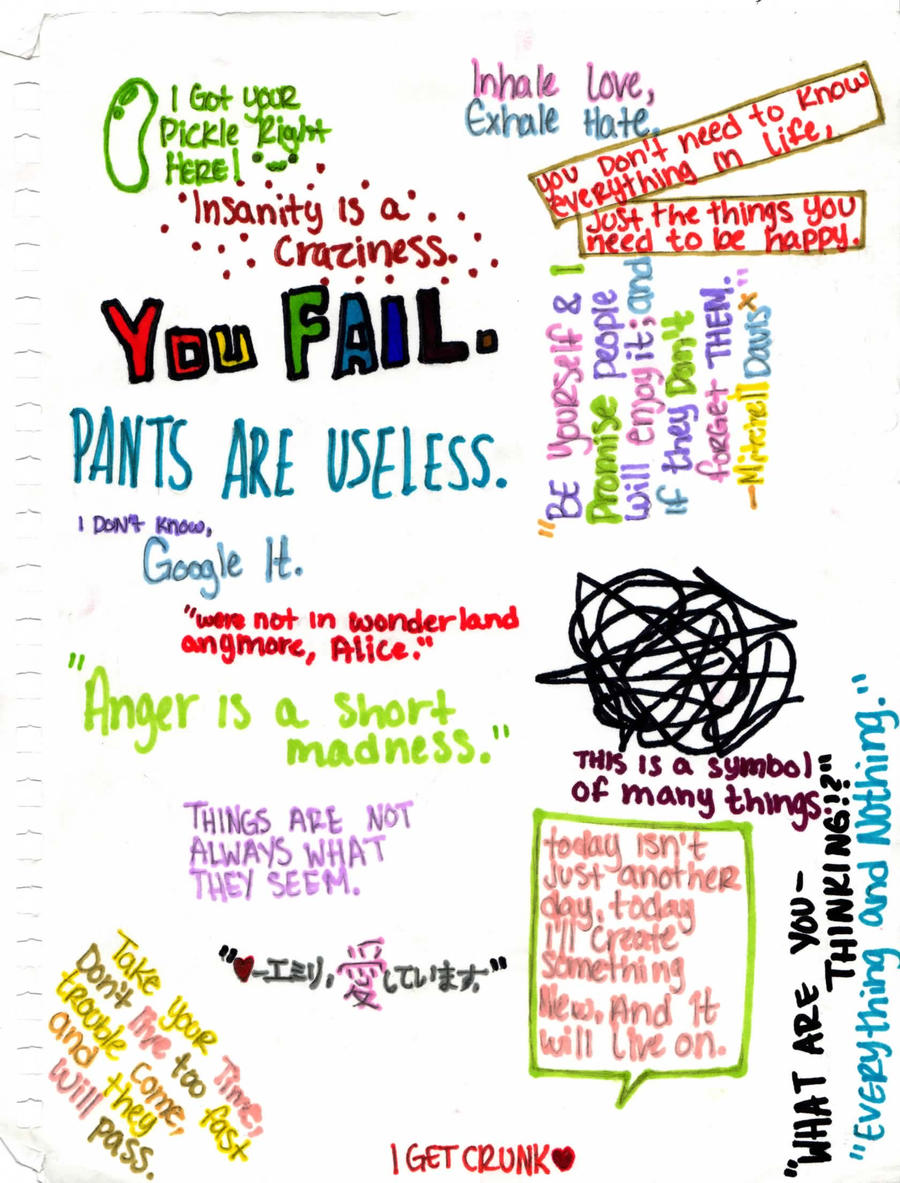 I Got your
Pickle Right
HERE!
Inhale Love,
Exhale Hate.
you Don't need to know
everything in life,
just the things you
need to be happy.
Insanity is a
Craziness.
YOU FAIL.
"BE YOURSELF & I
Promise people
will enjoy it; and
if they Don't
forget THEM."
-Mitchell Davis*
PANTS ARE USELESS.
I DON'T KNOW,
Google It.
"were not in wonderland
anymore, Alice."
"Anger is a short
madness."
THIS is a symbol
of many things.
THINGS ARE NOT
ALWAYS WHAT
THEY SEEM.
today isn't
just another
day, today
I'll create
something
New. And it
will live on.
"WHAT ARE YOU-
THINKING!?"
"Everything and Nothing."
"♥-エミリ, 愛しています."
Take your Time,
Don't live too fast
trouble come,
and they
will pass.
I GET CRUNK♥